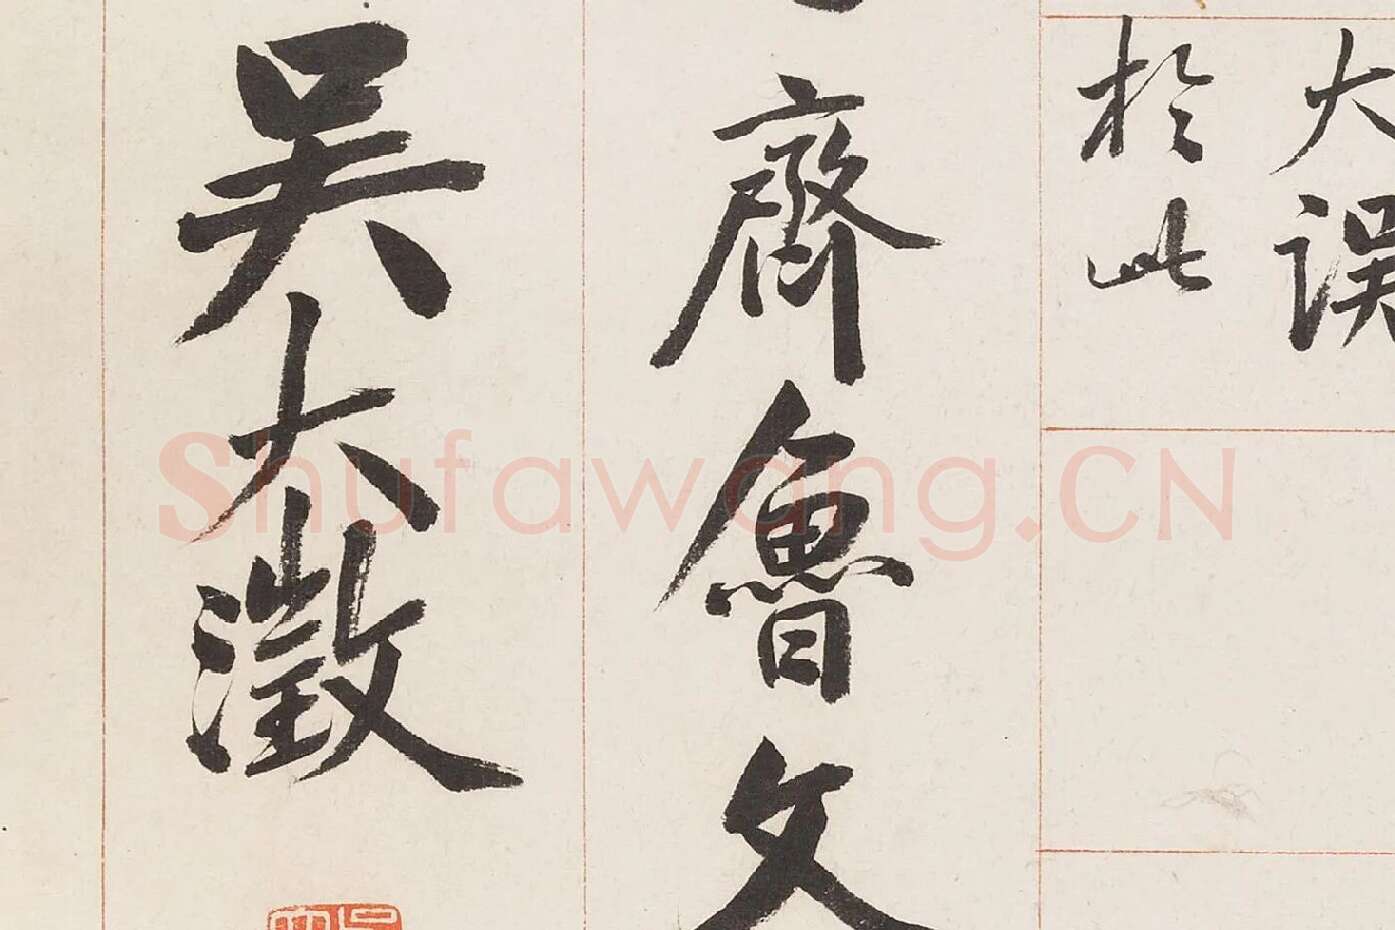 大误
於此
齋魯文
吳大澂
Shufawang.CN